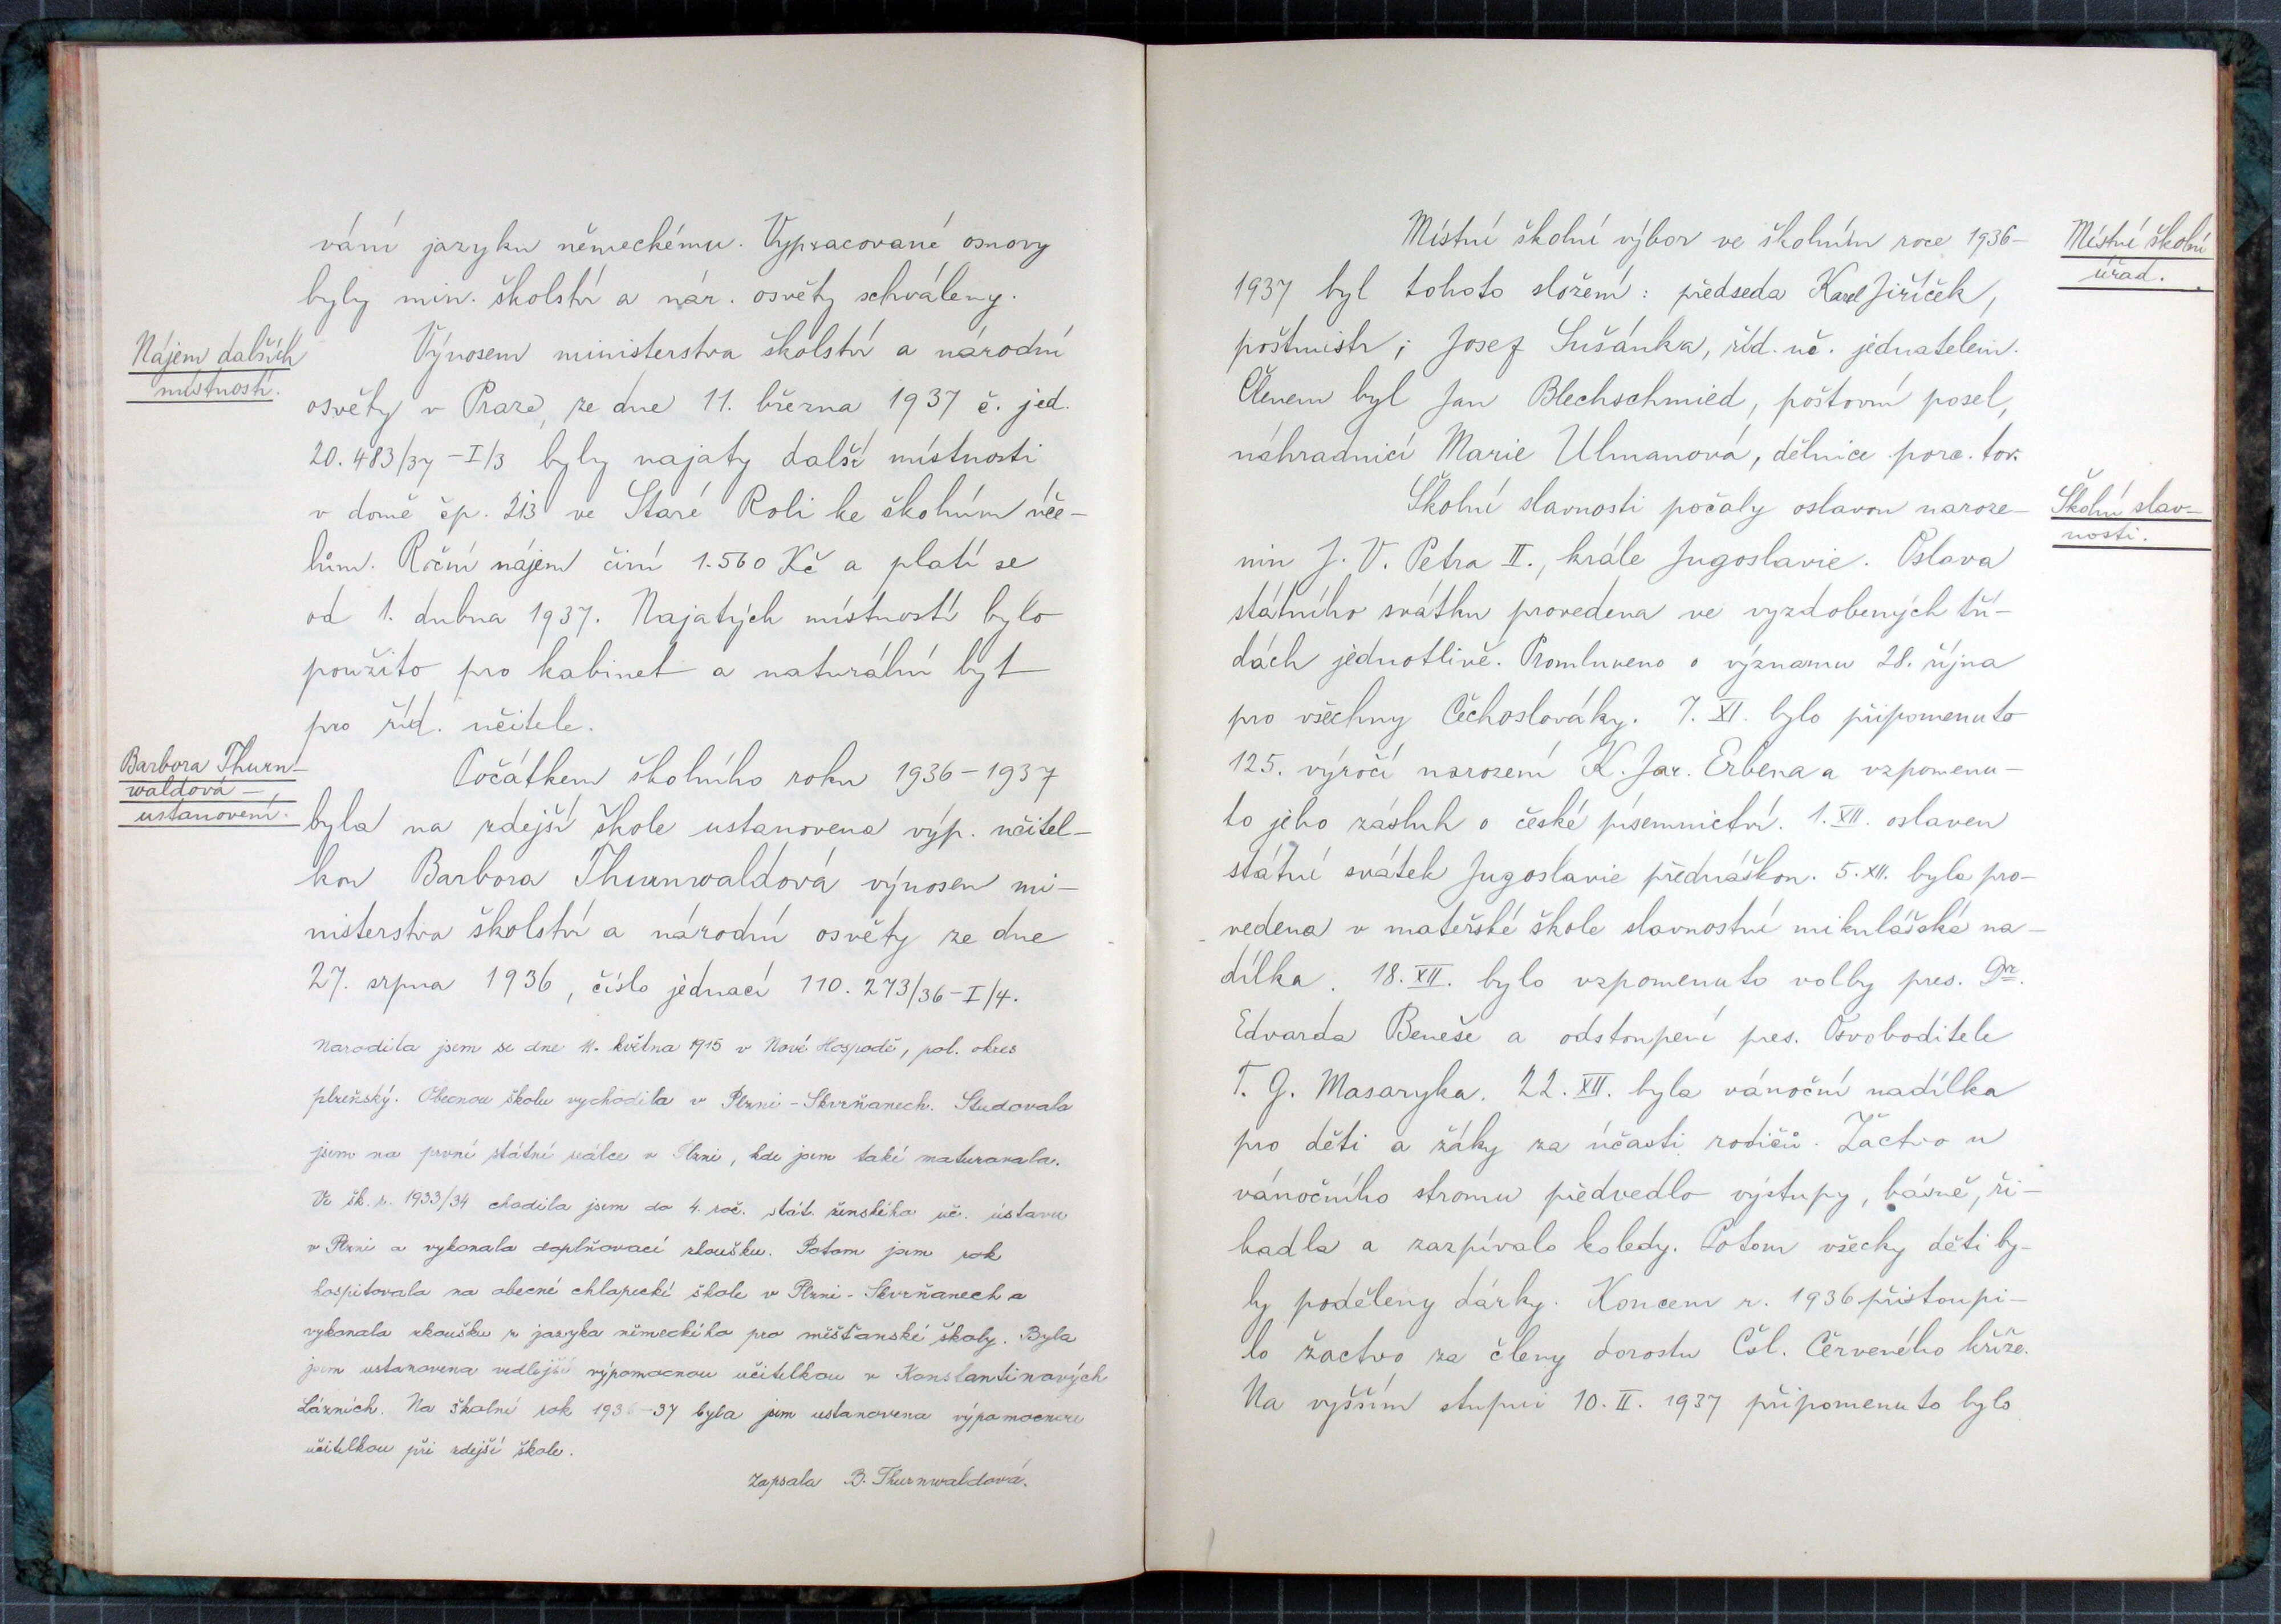 vání jazyku německému. Vypracované osnovy
byly min. školství a nár. osvěty schváleny.
Nájem dalších
místností.
Výnosem ministerstva školství a národní
osvěty v Praze, ze dne 11. března 1937 č. jed.
20.483/37-I/3 byly najaty další místnosti
v domě čp. 213 ve Staré Roli ke školním úče-
lům. Roční nájem činí 1.560 Kč a platí se
od 1. dubna 1937. Najatých místností bylo
použito pro kabinet a naturální byt
pro říd. učitele.
Barbora Thurn-
waldová -
ustanovení.
Počátkem školního roku 1936-1937
byla na zdejší škole ustanovena výp. učitel-
kou Barbora Thurnwaldová výnosem mi-
nisterstva školství a národní osvěty ze dne
27. srpna 1936, číslo jednací 110.273/36-I/4.
Narodila jsem se dne 11. května 1915 v Nové Hospodě, pol. okres
plzeňský. Obecnou školu vychodila v Plzni-Skvrňanech. Studovala
jsem na první státní reálce v Plzni, kde jsem také maturovala.
Ve šk. r. 1933/34 chodila jsem do 4. roč. stát. ženského uč. ústavu
v Plzni a vykonala doplňovací zkoušku. Potom jsem rok
hospitovala na obecné chlapecké škole v Plzni-Skvrňanech a
vykonala zkoušku z jazyka německého pro měšťanské školy. Byla
jsem ustanovena vedlejší výpomocnou učitelkou v Konstantinových
Lázních. Na školní rok 1936-37 byla jsem ustanovena výpomocnou
učitelkou při zdejší škole.
Zapsala B. Thurnwaldová.
Místní školní výbor ve školním roce 1936-
Místní školní
úřad.
1937 byl tohoto složení: předseda Karel Jiříček,
poštmistr; Josef Sušánka, říd. uč. jednatelem.
Členem byl Jan Blechschmied, poštovní posel,
náhradnicí Marie Ulmanová, dělnice porc. tov.
Školní slavnosti počaly oslavou naroze-
Školní slav-
nosti.
nin J. V. Petra II., krále Jugoslavie. Oslava
státního svátku provedena ve vyzdobených tří-
dách jednotlivě. Promluveno o významu 28. října
pro všechny Čechoslováky. 7. XI. bylo připomenuto
125. výročí narození K. Jar. Erbena a vzpomenu-
to jeho zásluh o české písemnictví. 1. XII. oslaven
státní svátek Jugoslavie přednáškou. 5. XII. byla pro-
vedena v mateřské škole slavnostní mikulášská na-
dílka. 18. XII. bylo vzpomenuto volby pres. Dr.
Edvarda Beneše a odstoupení pres. Osvoboditele
T. G. Masaryka. 22. XII. byla vánoční nadílka
pro děti a žáky za účasti rodičů. Žactvo u
vánočního stromu předvedlo výstupy, básně, ří-
kadla a zazpívalo koledy. Potom všecky děti by-
ly poděleny dárky. Koncem r. 1936 přistoupi-
lo žactvo za členy dorostu Čsl. Červeného kříže.
Na vyšším stupni 10. II. 1937 připomenuto bylo